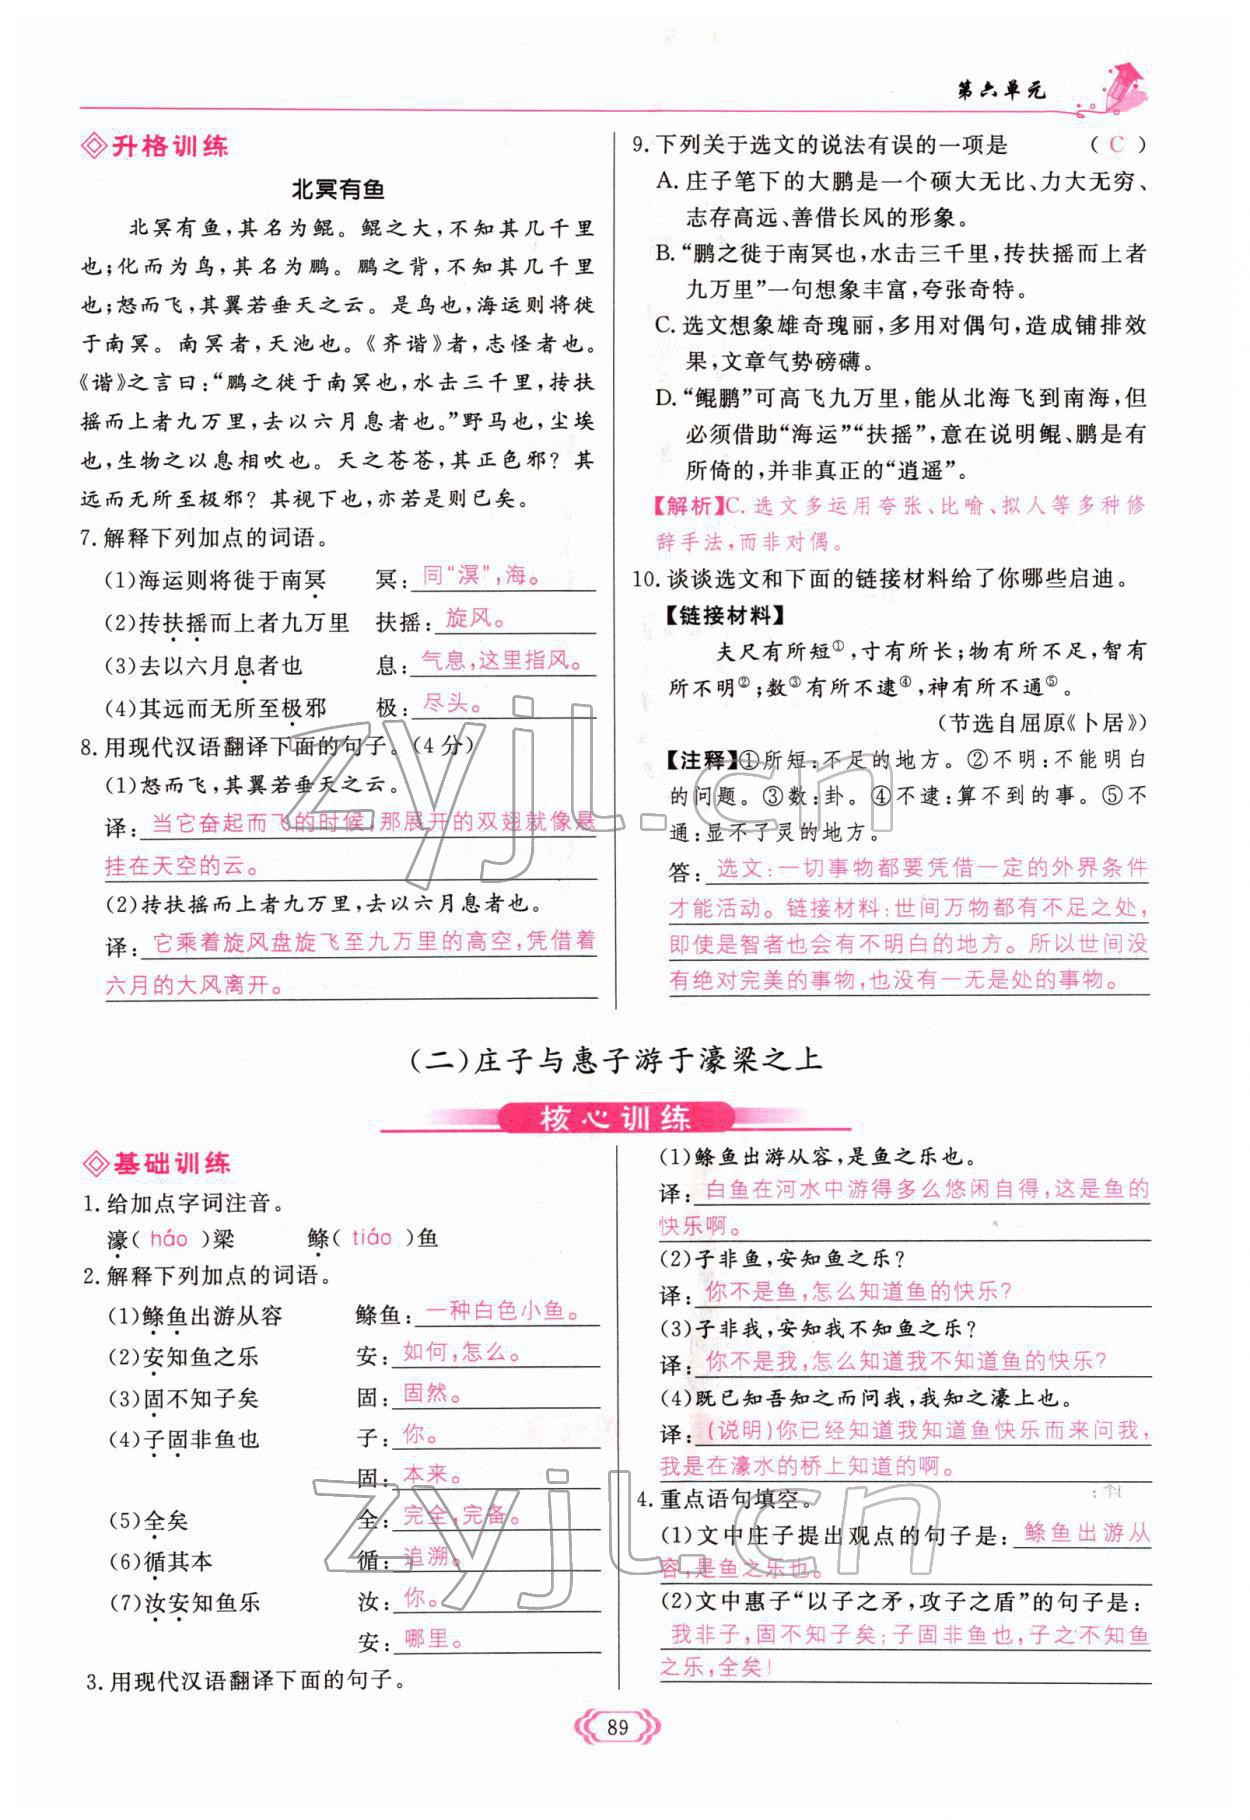 第六单元
升格训练
北冥有鱼
北冥有鱼,其名为鲲。鲲之大,不知其几千里
也;化而为鸟,其名为鹏。鹏之背,不知其几千里
也;怒而飞,其翼若垂天之云。是鸟也,海运则将徙
于南冥。南冥者,天池也。《齐谐》者,志怪者也。
《谐》之言曰:“鹏之徙于南冥也,水击三千里,抟扶
摇而上者九万里,去以六月息者也。”野马也,尘埃
也,生物之以息相吹也。天之苍苍,其正色邪?其
远而无所至极邪?其视下也,亦若是则已矣。
7.解释下列加点的词语。
(1)海运则将徙于南冥 冥:同“溟”,海。
(2)抟扶摇而上者九万里 扶摇:旋风。
(3)去以六月息者也 息:气息,这里指风。
(4)其远而无所至极邪 极:尽头。
8.用现代汉语翻译下面的句子。(4分)
(1)怒而飞,其翼若垂天之云。
译:当它奋起而飞的时候,那展开的双翅就像悬
挂在天空的云。
(2)抟扶摇而上者九万里,去以六月息者也。
译:它乘着旋风盘旋飞至九万里的高空,凭借着
六月的大风离开。
9.下列关于选文的说法有误的一项是 ( C )
A.庄子笔下的大鹏是一个硕大无比、力大无穷、
志存高远、善借长风的形象。
B.“鹏之徙于南冥也,水击三千里,抟扶摇而上者
九万里”一句想象丰富,夸张奇特。
C.选文想象雄奇瑰丽,多用对偶句,造成铺排效
果,文章气势磅礴。
D.“鲲鹏”可高飞九万里,能从北海飞到南海,但
必须借助“海运”“扶摇”,意在说明鲲、鹏是有
所倚的,并非真正的“逍遥”。
【解析】C.选文多运用夸张、比喻、拟人等多种修
辞手法,而非对偶。
10.谈谈选文和下面的链接材料给了你哪些启迪。
【链接材料】
夫尺有所短①,寸有所长;物有所不足,智有
所不明②;数③有所不逮④,神有所不通⑤。
(节选自屈原《卜居》)
【注释】①所短:不足的地方。②不明:不能明白
的问题。③数:卦。④不逮:算不到的事。⑤不
通:显不了灵的地方。
答:选文:一切事物都要凭借一定的外界条件
才能活动。链接材料:世间万物都有不足之处,
即使是智者也会有不明白的地方。所以世间没
有绝对完美的事物,也没有一无是处的事物。
(二)庄子与惠子游于濠梁之上
核心训练
基础训练
1.给加点字词注音。
濠( háo )梁 鲦( tiáo )鱼
2.解释下列加点的词语。
(1)鲦鱼出游从容 鲦鱼:一种白色小鱼。
(2)安知鱼之乐 安:如何,怎么。
(3)固不知子矣 固:固然。
(4)子固非鱼也 子:你。
固:本来。
(5)全矣 全:完全,完备。
(6)循其本 循:追溯。
(7)汝安知鱼乐 汝:你。
安:哪里。
3.用现代汉语翻译下面的句子。
(1)鲦鱼出游从容,是鱼之乐也。
译:白鱼在河水中游得多么悠闲自得,这是鱼的
快乐啊。
(2)子非鱼,安知鱼之乐?
译:你不是鱼,怎么知道鱼的快乐?
(3)子非我,安知我不知鱼之乐?
译:你不是我,怎么知道我不知道鱼的快乐?
(4)既已知吾知之而问我,我知之濠上也。
译:(说明)你已经知道我知道鱼快乐而来问我,
我是在濠水的桥上知道的啊。
4.重点语句填空。
(1)文中庄子提出观点的句子是:鲦鱼出游从
容,是鱼之乐也。
(2)文中惠子“以子之矛,攻子之盾”的句子是:
我非子,固不知子矣;子固非鱼也,子之不知鱼
之乐,全矣!
89
zyjl.cn
zyjl.cn